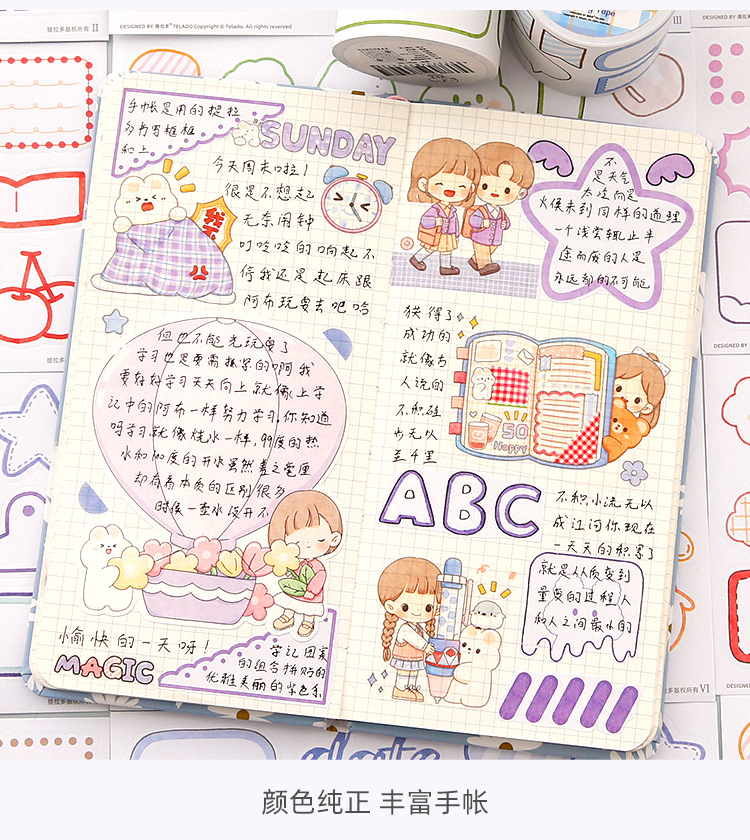 DESIGNED BY 提拉多® TELADO Copyright © Telado. All rights reserved.
提拉多版权所有 II
III
手帐是用的提拉
多书写框框
和上
SUNDAY
今天周末啦!
很是不想起
无奈闹钟
叮咚咚的响起不
停我还是起床跟
阿布玩耍去吧哈
但也不能光玩耍了
学习也是要需抓紧的啊我
要好好学习天天向上就像上学
记中的阿布一样努力学习.你知道
吗学习就像烧水一样,99度的热
水和100度的开水虽然差之毫厘
却有着本质的区别很多
时候一壶水没开不
愉快的一天呀!
MAGIC
学记图案
的组合拼贴的
优雅美丽的紫色系
不
是天气
火候未到同样的道理
一个浅尝辄止半
途而废的人是
永远都的不可能
获得了
成功的
就像古
人说的
不积跬
步无以
至千里
SO
Happy
ABC
不积小流无以
成江河你现在
一天天的积累了
就是从质变到
量变的过程人
和人之间最小的
提拉多版权所有 VI
date
颜色纯正 丰富手帐